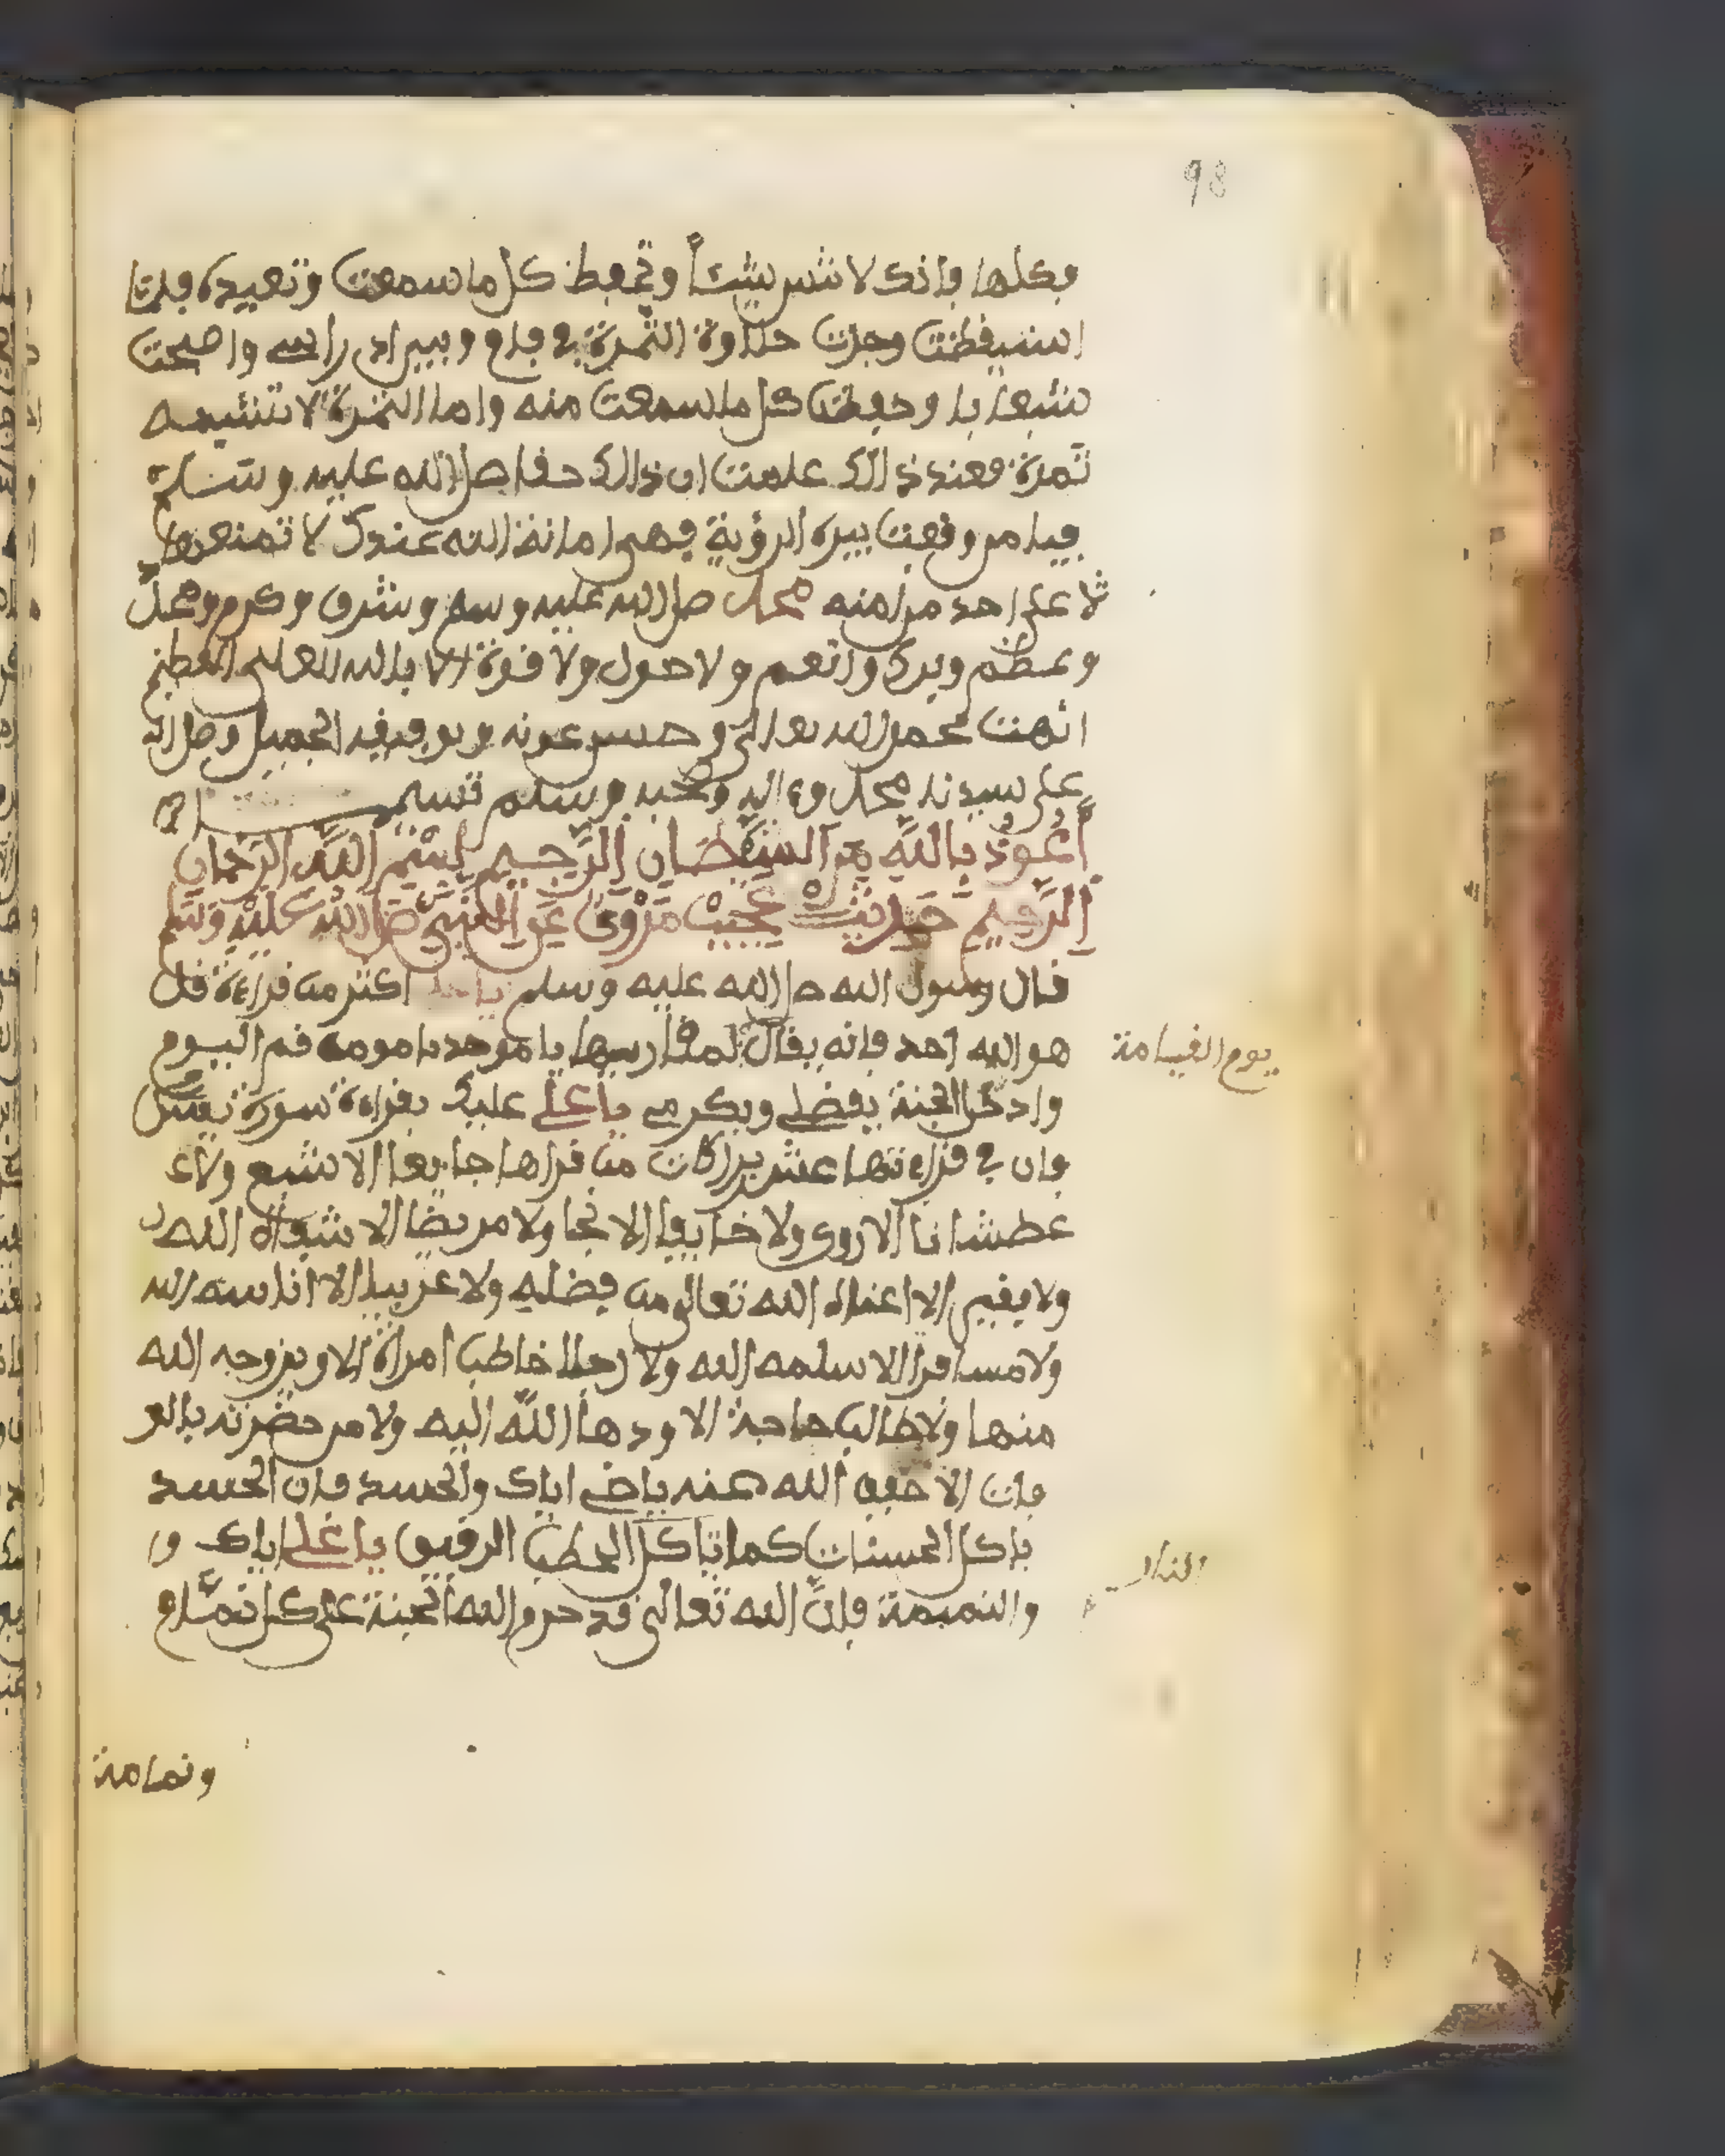 98
فكلها فإنك لا تنس شيئاً وتحفظ كل ما سمعت وتعيده فلما
استيقظت وجدت حلاوة التمرة في فاى وبيراد راسے واصبحت
شبعا نا وحفظت كل ما سمعت منه واما التمرة لا تشبهه
تمرة فعند ذالك علمت ان ذالك حفا صلى الله عليه وسلم
فيا من وقعت بيده الرؤية فهى امانة الله عندك لا تمنعها
على احد من امته محمد صلى الله عليه وسلم وشرف وكرم ومجد
وعظم وبرك وانعم ولا حول ولا قوة الا بالله العلى العظيم
انتهت بحمد الله تعالى وحسن عونه وتوفيقه الجميل وصلى الله
على سيدنا محمد وءاله وصحبه وسلم تسليما
أَعُوذُ بِاللَّهِ مِنَ الشَّيْطَانِ الرَّجِيمِ بِسْمِ اللَّهِ الرَّحْمَانِ
الرَّحِيمِ حَدِيثٌ عَجِيبٌ مَرْوِىٌّ عَنِ النَّبِىِّ صَلَّى اللَّهُ عَلَيْهِ وَسَلَّمَ
قال رسول الله صلى الله عليه وسلم يا على اكثر من قراءة قل
هو الله احد فانه يقال لمن قاريها يا موحد يا مومن قم اليوم
يوم القيامة
وادخل الجنة بفضلے وبكرمے يا علے عليك بقراءة سورة يس
فان في قراءتها عشر بركات من قراها جايعا الا شبع ولا
عطشانا الا روى ولا خايفا الا نجا ولا مريضا الا شفاه الله
ولا فقير الا اغناه الله تعالى من فضله ولا غريبا الا انا سه الله
ولا مسافرا الا سلمه الله ولا رجلا خاطب امراة الا ويزوجه الله
منها ولا طالب حاجة الا ودها الله اليه ولا من حضرته بالو
فات الا خفف الله عنه ياعلے اياك والحسد فان الحسد
ياكل الحسنات كما تاكل الحطب الرقيق يا علے اياك و
النار
والنميمة فإنّ الله تعالى قد حرم الله الجنة على كل نمّام
ونمامة